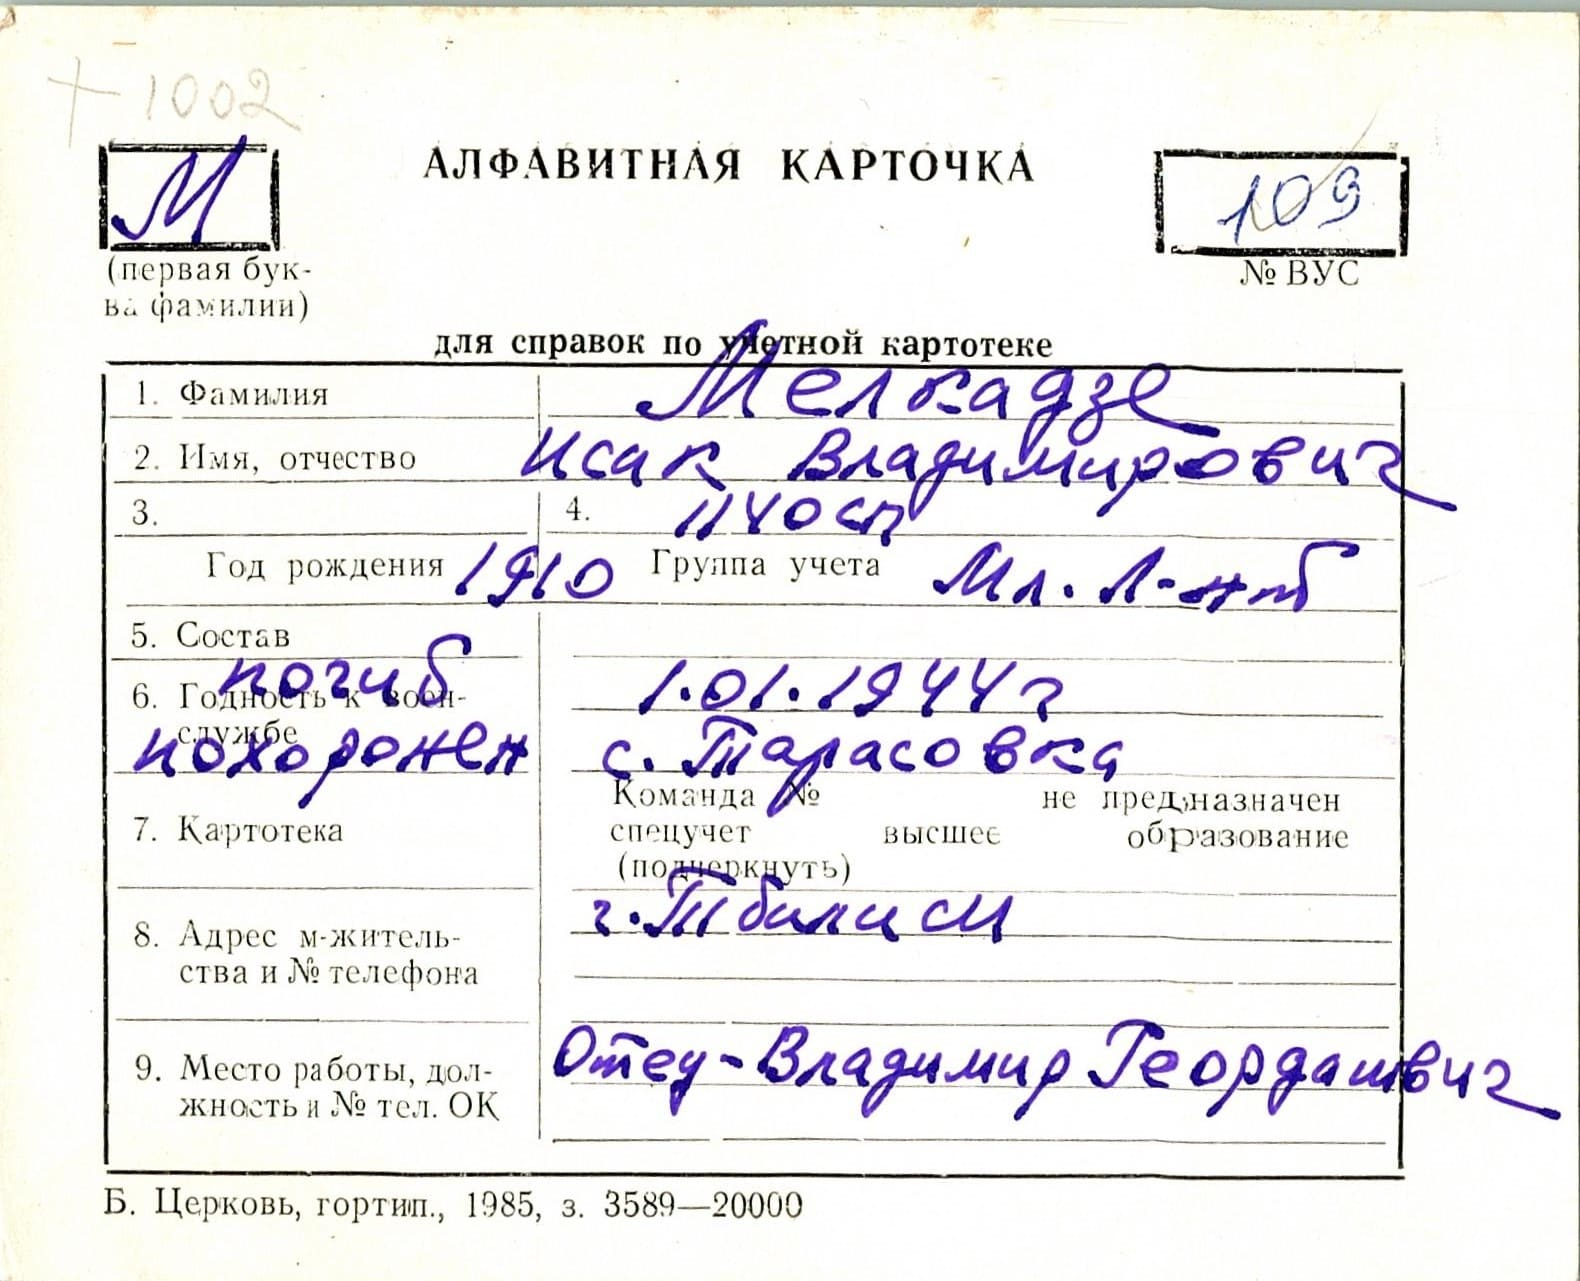 + 1002
М
АЛФАВИТНАЯ КАРТОЧКА
109
(первая бук-
ва фамилии)
№ ВУС
для справок по учетной картотеке
1. Фамилия Мелкадзе
2. Имя, отчество Исак Владимирович
3. 4. 1140 сп
Год рождения 1910 Группа учета Мл. Л-нт
5. Состав
погиб 1.01.1944 г
6. Годность к воен-
службе
похоронен с. Тарасовка
Команда № не предназначен
7. Картотека спецучет высшее образование
(подчеркнуть)
г. Тбилиси
8. Адрес м-житель-
ства и № телефона
Отец - Владимир
9. Место работы, дол-
жность и № тел. ОК
Б. Церковь, гортип., 1985, з. 3589—20000